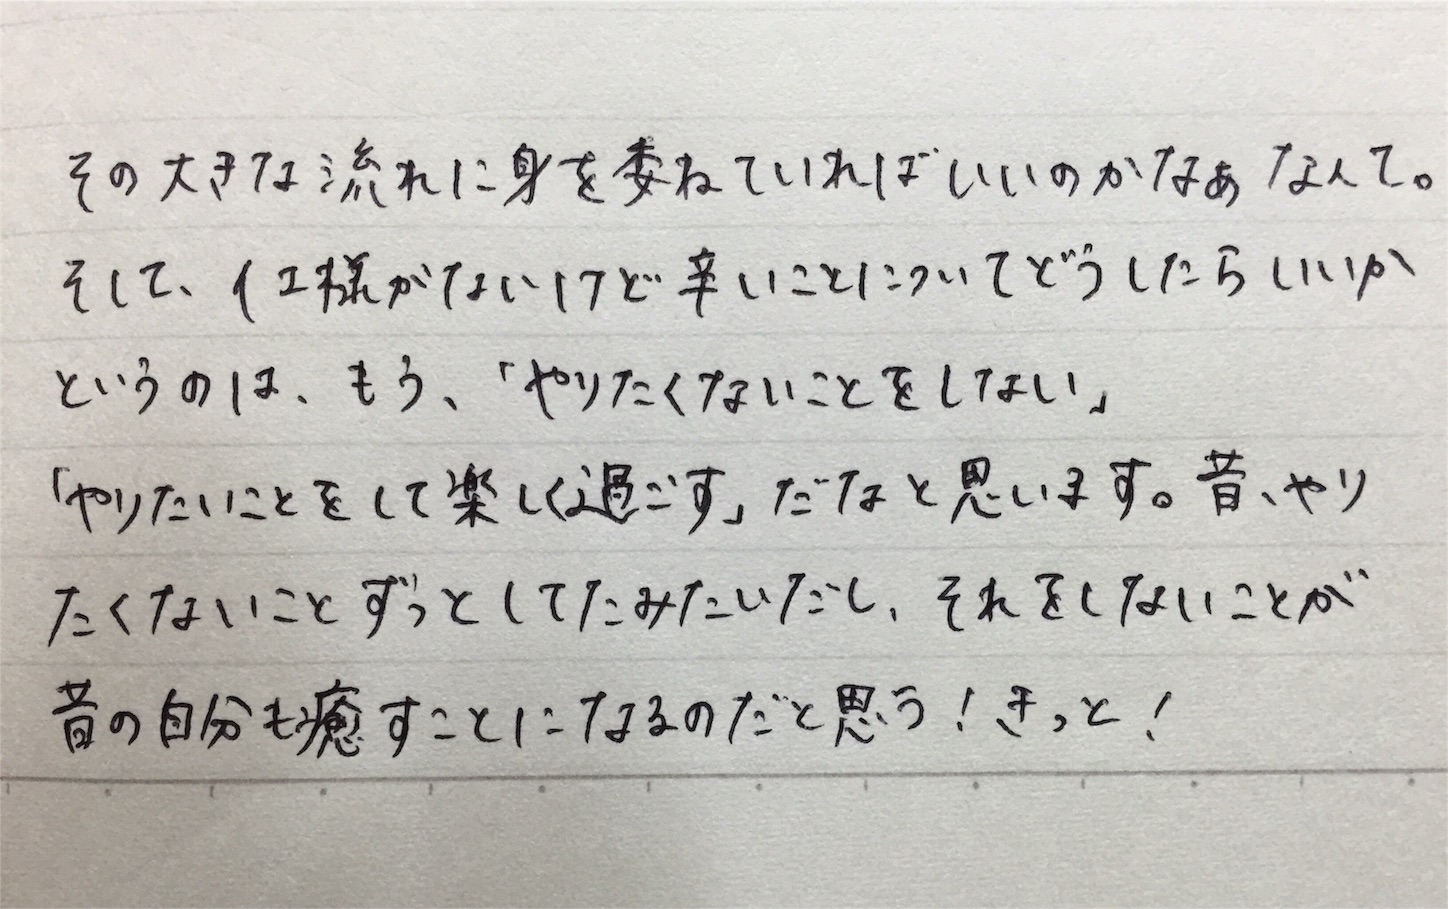 その大きな流れに身を委ねていればいいのかなぁなんて。
そして、仕様がないけど辛いことについてどうしたらいいか
というのは、もう、「やりたくないことをしない」
「やりたいことをして楽しく過ごす」だなと思います。昔、やり
たくないことずっとしてたみたいだし、それをしないことが
昔の自分も癒すことになるのだと思う！きっと！